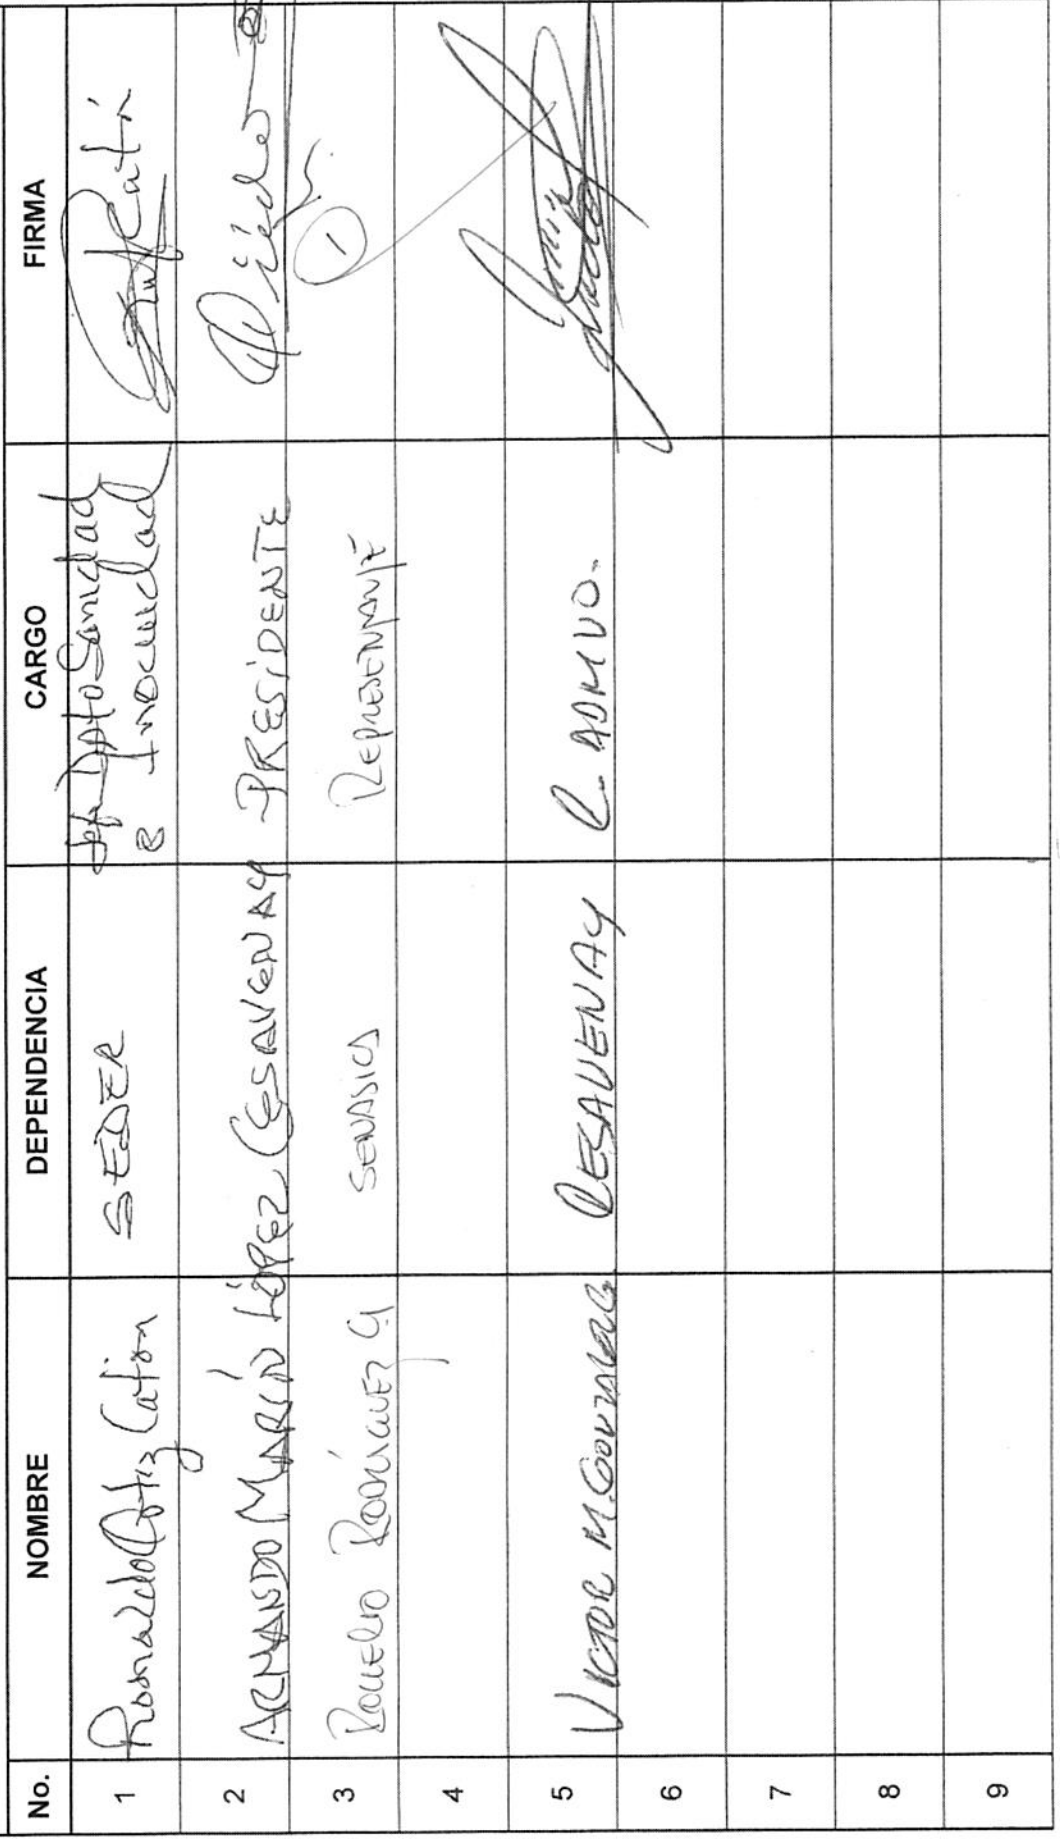 No. NOMBRE DEPENDENCIA CARGO FIRMA
1 Romualdo Ortiz Catón SEDER Jefe Dpto Sanidad
e Inocuidad
2 ARMANDO MARÍN LÓPEZ CESAVENAY PRESIDENTE
3 ROGELIO RODRÍGUEZ G SENASICA REPRESENTANTE
1
4
5 VICTOR M. GONZALEZ CESAVENAY C. ADMVO.
6
7
8
9